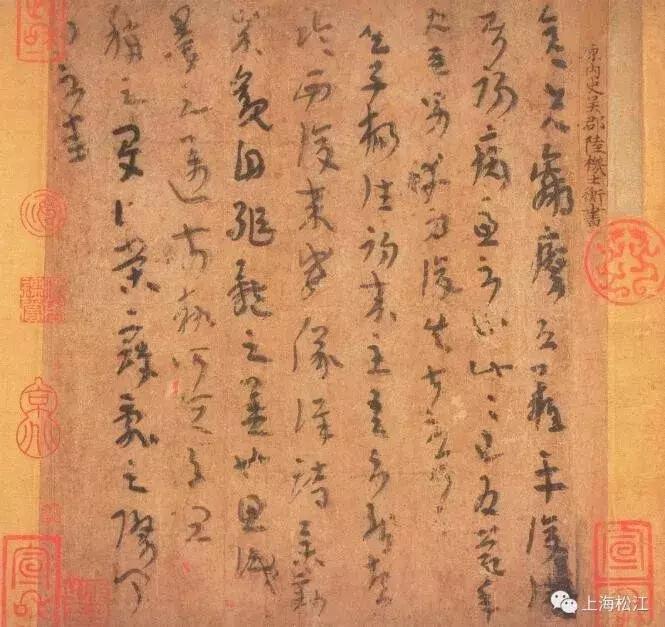 原內史吳郡陸機士衡書
先羸瘵恐難平復往
屬初病慮不止此此已為慶
使唯男幸為復失前憂耳
吳子楊往初來主吾不能盡
臨西復來威儀詳跱舉動
成觀自軀體之美也思識
量之邁前勢所恒有宜
稱之夏伯榮寇亂之際聞
問不悉
上海松江